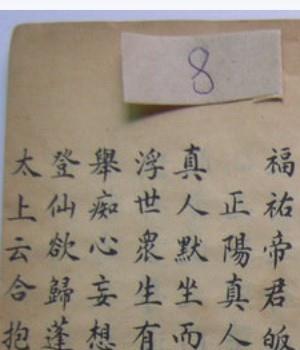 8
福祐帝君皈
正陽真人
真人默坐而
浮世衆生有
舉痴心妄想
登仙欲歸蓬
太上云合抱